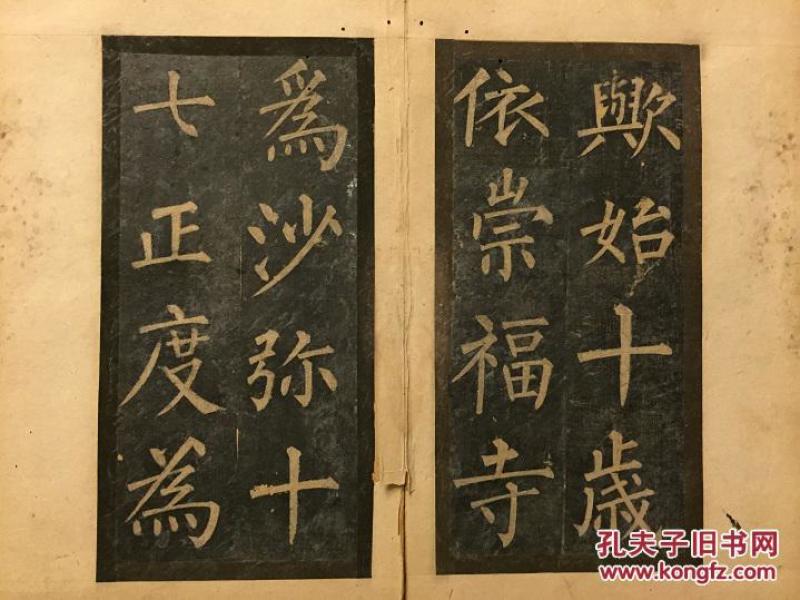 歟始十歲
依崇福寺
爲沙弥十
七正度為
孔夫子旧书网
www.kongfz.com